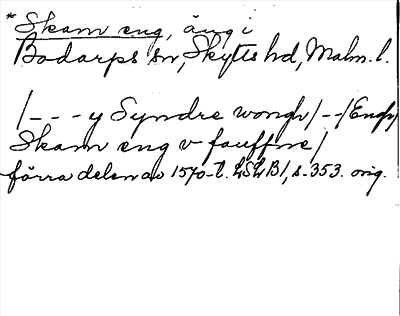 * Skam eng, äng i
Bodarps sn, Skytts hd, Malm. l.
/ - - - y Syndre wongh / - - / Engh /
Skam eng v fauffne /
förra delen av 1570-t. LSLB1, s. 353. orig.